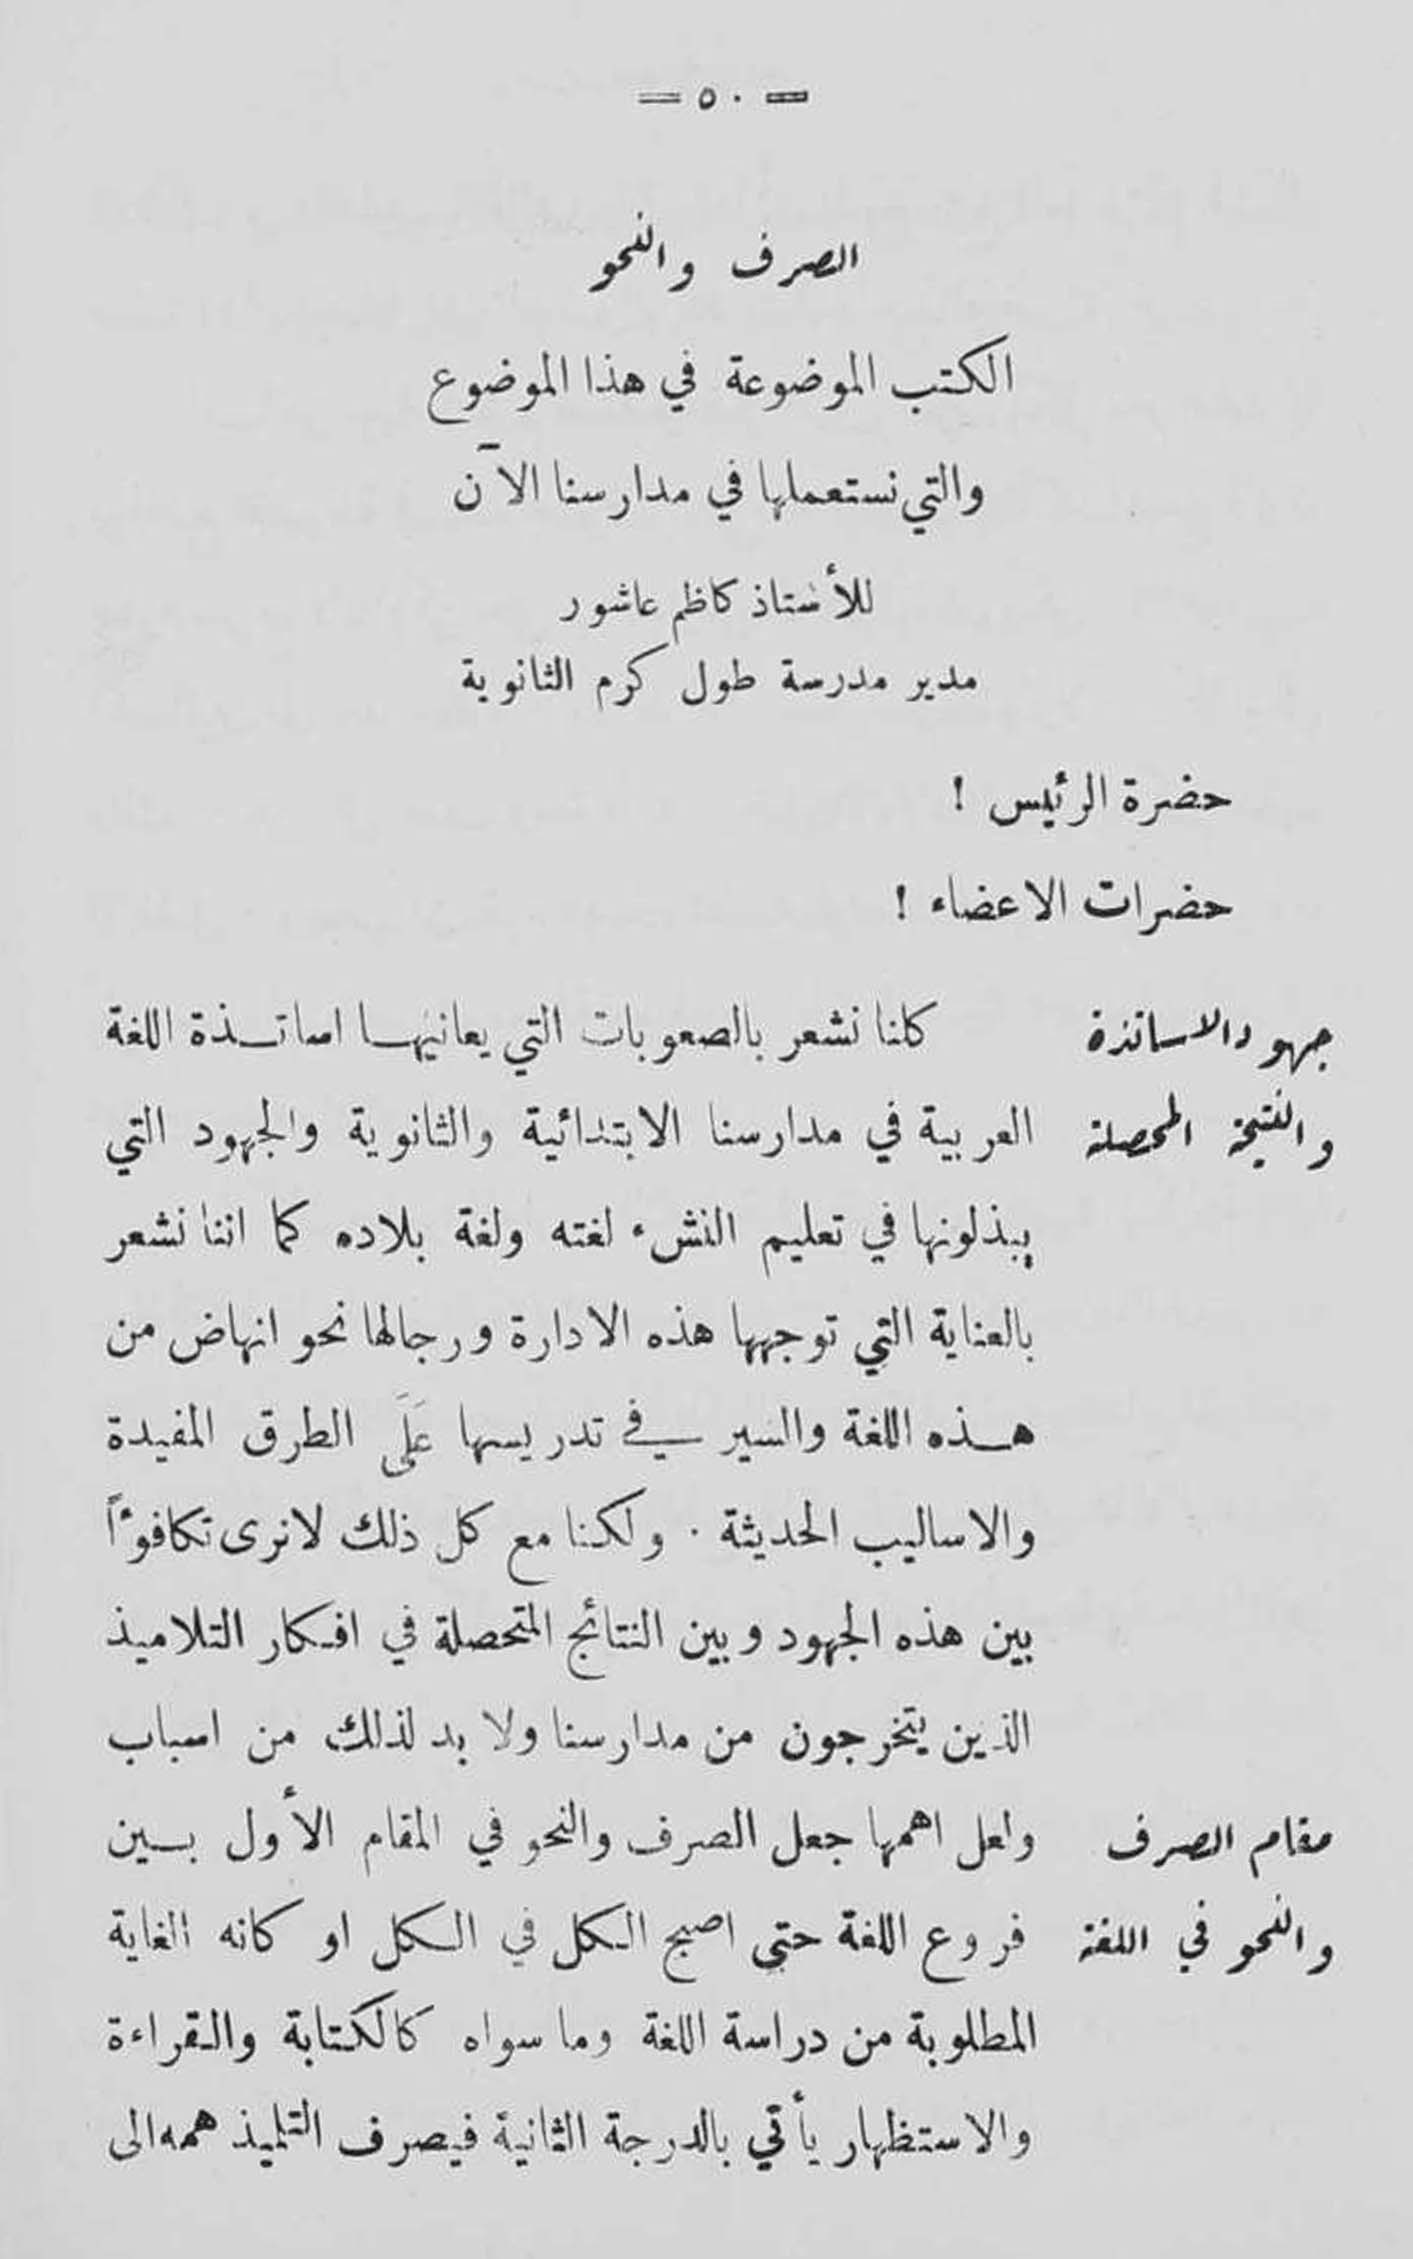 = ٥٠ =
الصرف والنحو
الكتب الموضوعة في هذا الموضوع
والتي نستعملها في مدارسنا الآن
للأستاذ كاظم عاشور
مدير مدرسة طول كرم الثانوية
حضرة الرئيس !
حضرات الاعضاء !
جهود الاساتذة
والنتيجة المحصلة
كلنا نشعر بالصعوبات التي يعانيها اساتذة اللغة
العربية في مدارسنا الابتدائية والثانوية والجهود التي
يبذلونها في تعليم النشء لغته ولغة بلاده كما اننا نشعر
بالعناية التي توجهها هذه الادارة ورجالها نحو انهاض من
هذه اللغة والسير في تدريسها عَلَى الطرق المفيدة
والاساليب الحديثة . ولكنا مع كل ذلك لا نرى تكافوءًا
بين هذه الجهود وبين النتائج المتحصلة في افكار التلاميذ
الذين يتخرجون من مدارسنا ولا بد لذلك من اسباب
مقام الصرف
والنحو في اللغة
ولعل اهمها جعل الصرف والنحو في المقام الأول بين
فروع اللغة حتى اصبح الكل في الكل او كانه الغاية
المطلوبة من دراسة اللغة وما سواه كالكتابة والقراءة
والاستظهار يأتي بالدرجة الثانية فيصرف التلميذ همه الى